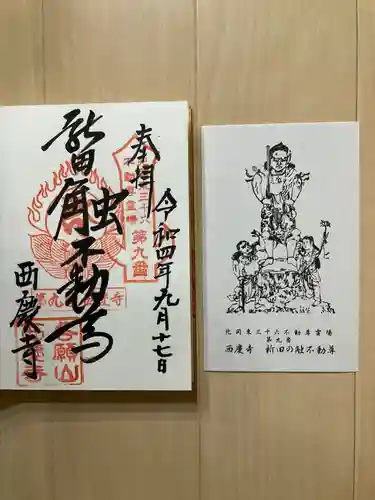 奉拝
令和四年九月十七日
第九番
新田触不動尊
西慶寺
北関東三十六不動尊霊場
第九番
西慶寺 新田の触不動尊